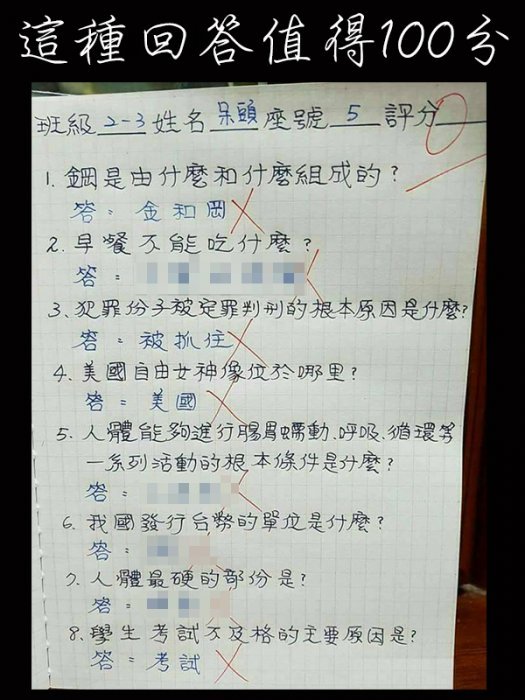 這種回答值得100分
班級 2-3 姓名 呆頭 座號 5 評分 0
1. 鋼是由什麼和什麼組成的?
答: 金和岡
2. 早餐不能吃什麼?
答:
3. 犯罪份子被定罪判刑的根本原因是什麼?
答: 被抓住
4. 美國自由女神像位於哪里?
答: 美國
5. 人體能夠進行腸胃蠕動、呼吸、循環等
一系列活動的根本條件是什麼?
答:
6. 我國發行台幣的單位是什麼?
答:
7. 人體最硬的部份是?
答:
8. 學生考試不及格的主要原因是?
答: 考試